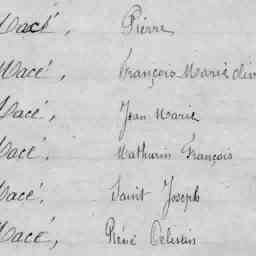 Macé, Pierre
Macé, François Marie Oliv
Macé, Jean Marie
Macé, Mathurin François
Macé, Saint Joseph
Macé, Réné Célestin